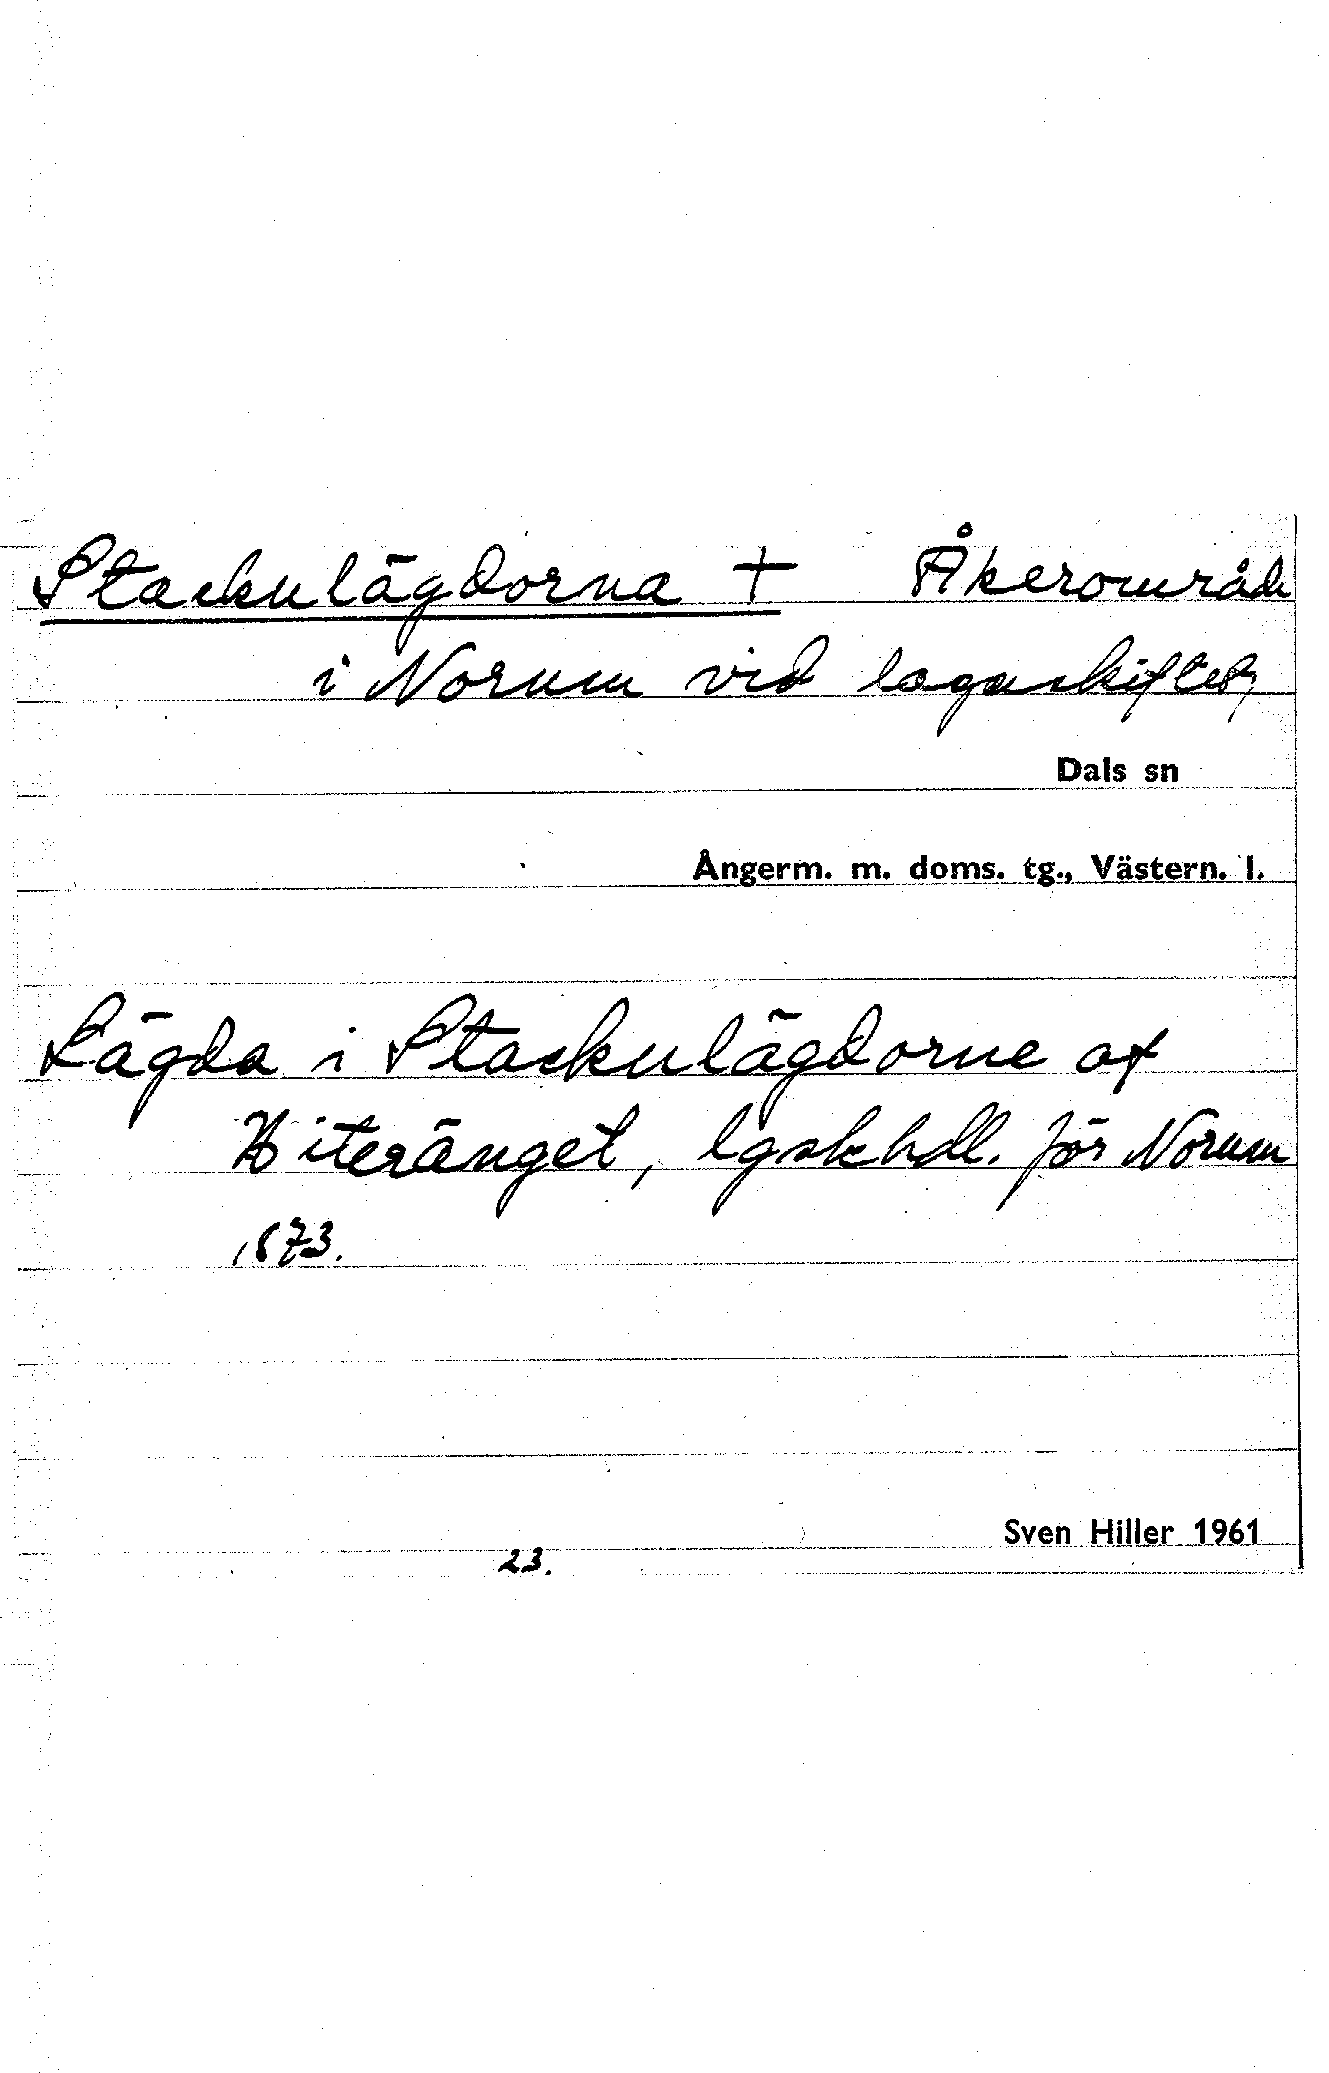 Stackulägdorna + Åkerområde
i Norum vid lagaskiftet,
Dals sn
Ångerm. m. doms. tg., Västern. l.
Lägda i Stackulägdorne af
änget, lgskhdl. för Norum
1873.
Sven Hiller 1961
23.